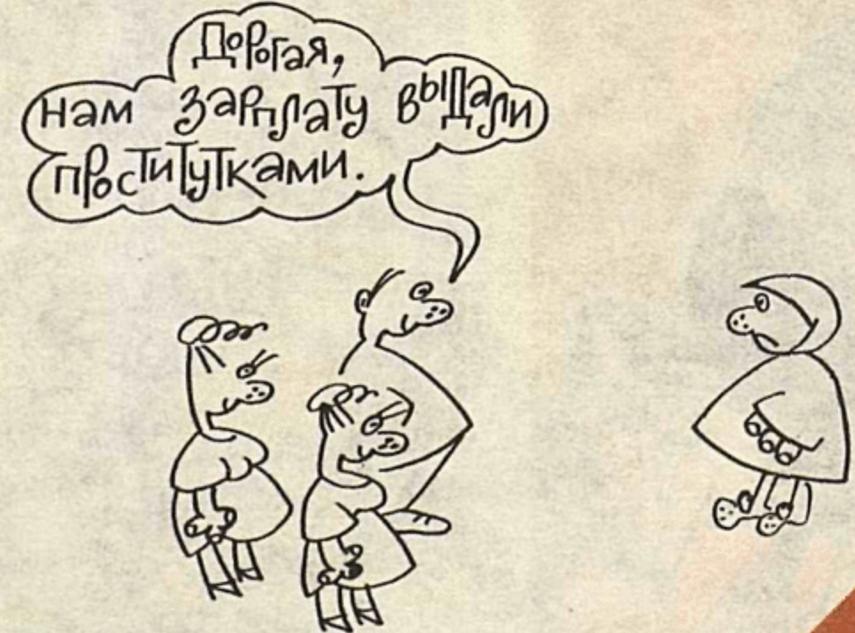 Дорогая,
нам зарплату выдали
проститутками.